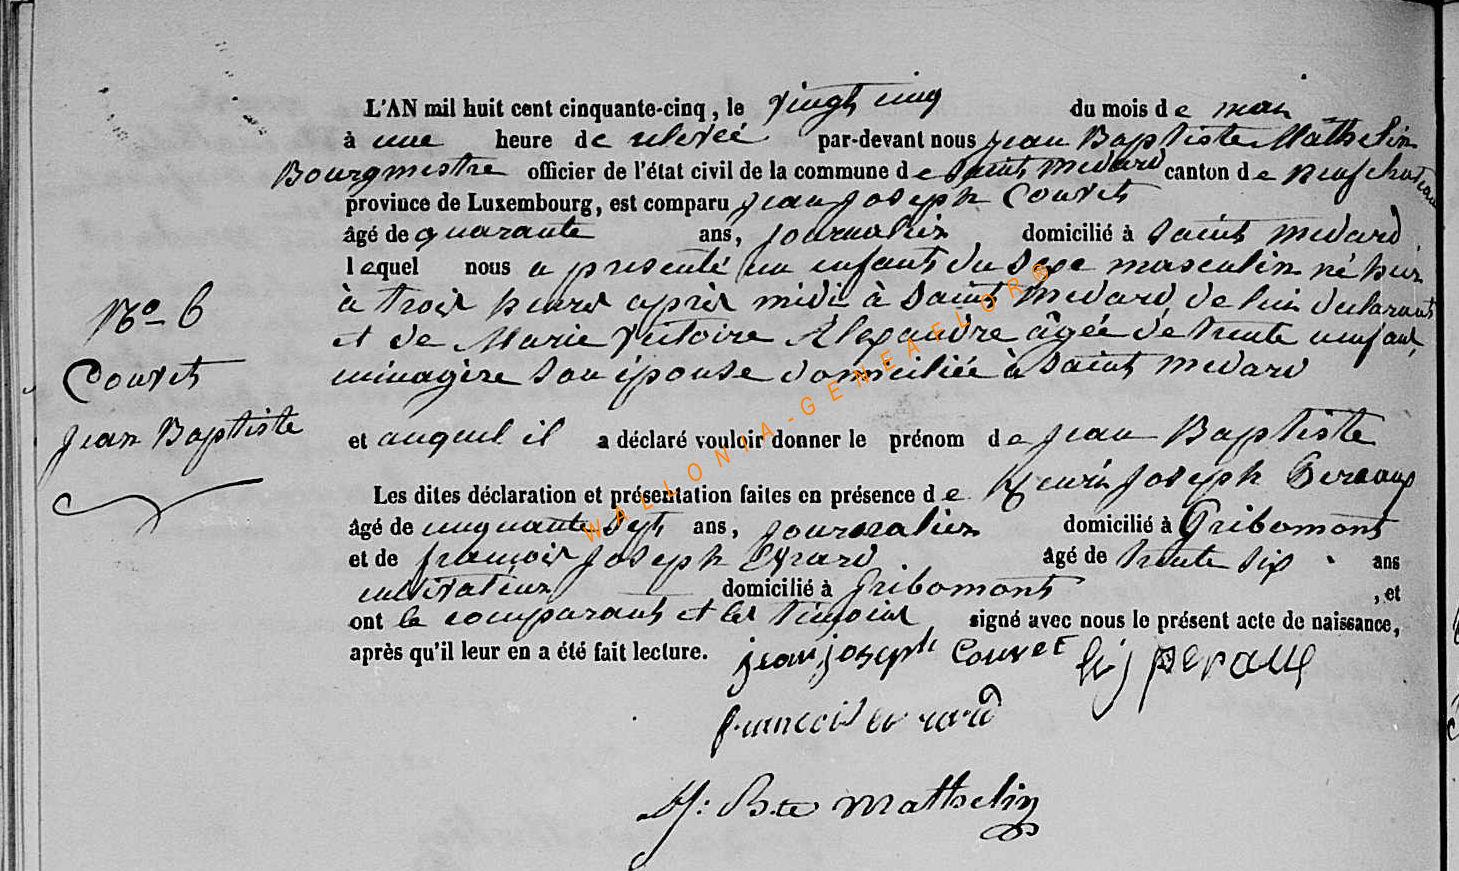 L'AN mil huit cent cinquante-cinq, le vingt cinq du mois de mai
à une heure de relevée par-devant nous Jean Baptiste Mathelin
Bourgmestre officier de l'état civil de la commune de Saint Medard canton de Neufchateau
province de Luxembourg, est comparu Jean Joseph Couvet
âgé de quarante ans, journalier domicilié à Saint Medard,
lequel nous a presenté un enfant du sexe masculin né hier
à trois heures après midi à Saint Medard, de lui declarant
et de Marie Victoire Alexandre âgée de trente neuf ans,
ménagère son épouse domiciliée à Saint Medard
No 6
Couvet
Jean Baptiste
et auquel il a déclaré vouloir donner le prénom de Jean Baptiste
Les dites déclaration et présentation faites en présence de Henri Joseph
âgé de cinquante sept ans, journalier domicilié à Gribomont
et de françois Joseph Evrard âgé de trente six ans
cultivateur domicilié à Gribomont, et
ont le comparant et les témoins signé avec nous le présent acte de naissance,
après qu'il leur en a été fait lecture. jean joseph Couvet
francois evrard
J: Bte Mathelin
WALLONIA-GENEAELORG